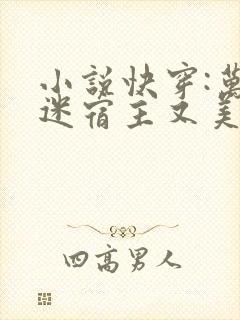 小說快穿:萬
迷宿主又美
四高男人